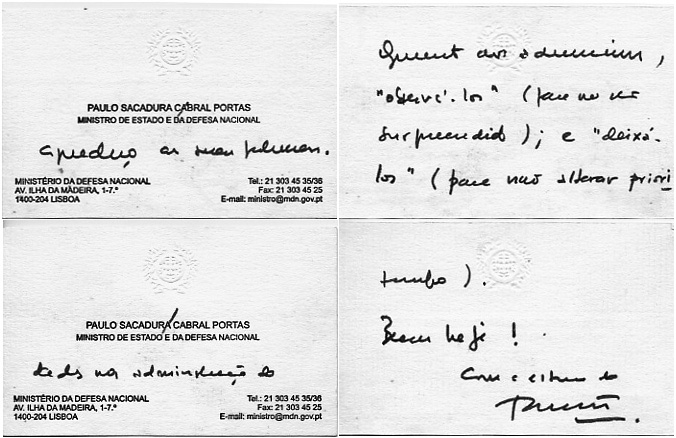 PAULO SACADURA CABRAL PORTAS
MINISTRO DE ESTADO E DA DEFESA NACIONAL
agradeço as suas palavras.
MINISTÉRIO DA DEFESA NACIONAL
AV. ILHA DA MADEIRA, 1-7.º
1400-204 LISBOA
Tel.: 21 303 45 35/36
Fax: 21 303 45 25
E-mail: ministro@mdn.gov.pt
Quanto aos
"observá-los" (para não ser
surpreendido); e "deixá-
los" (para não alterar priori
PAULO SACADURA CABRAL PORTAS
MINISTRO DE ESTADO E DA DEFESA NACIONAL
na administração do
MINISTÉRIO DA DEFESA NACIONAL
AV. ILHA DA MADEIRA, 1-7.º
1400-204 LISBOA
Tel.: 21 303 45 35/36
Fax: 21 303 45 25
E-mail: ministro@mdn.gov.pt
tempo).
Bem haja!
Com a estima do